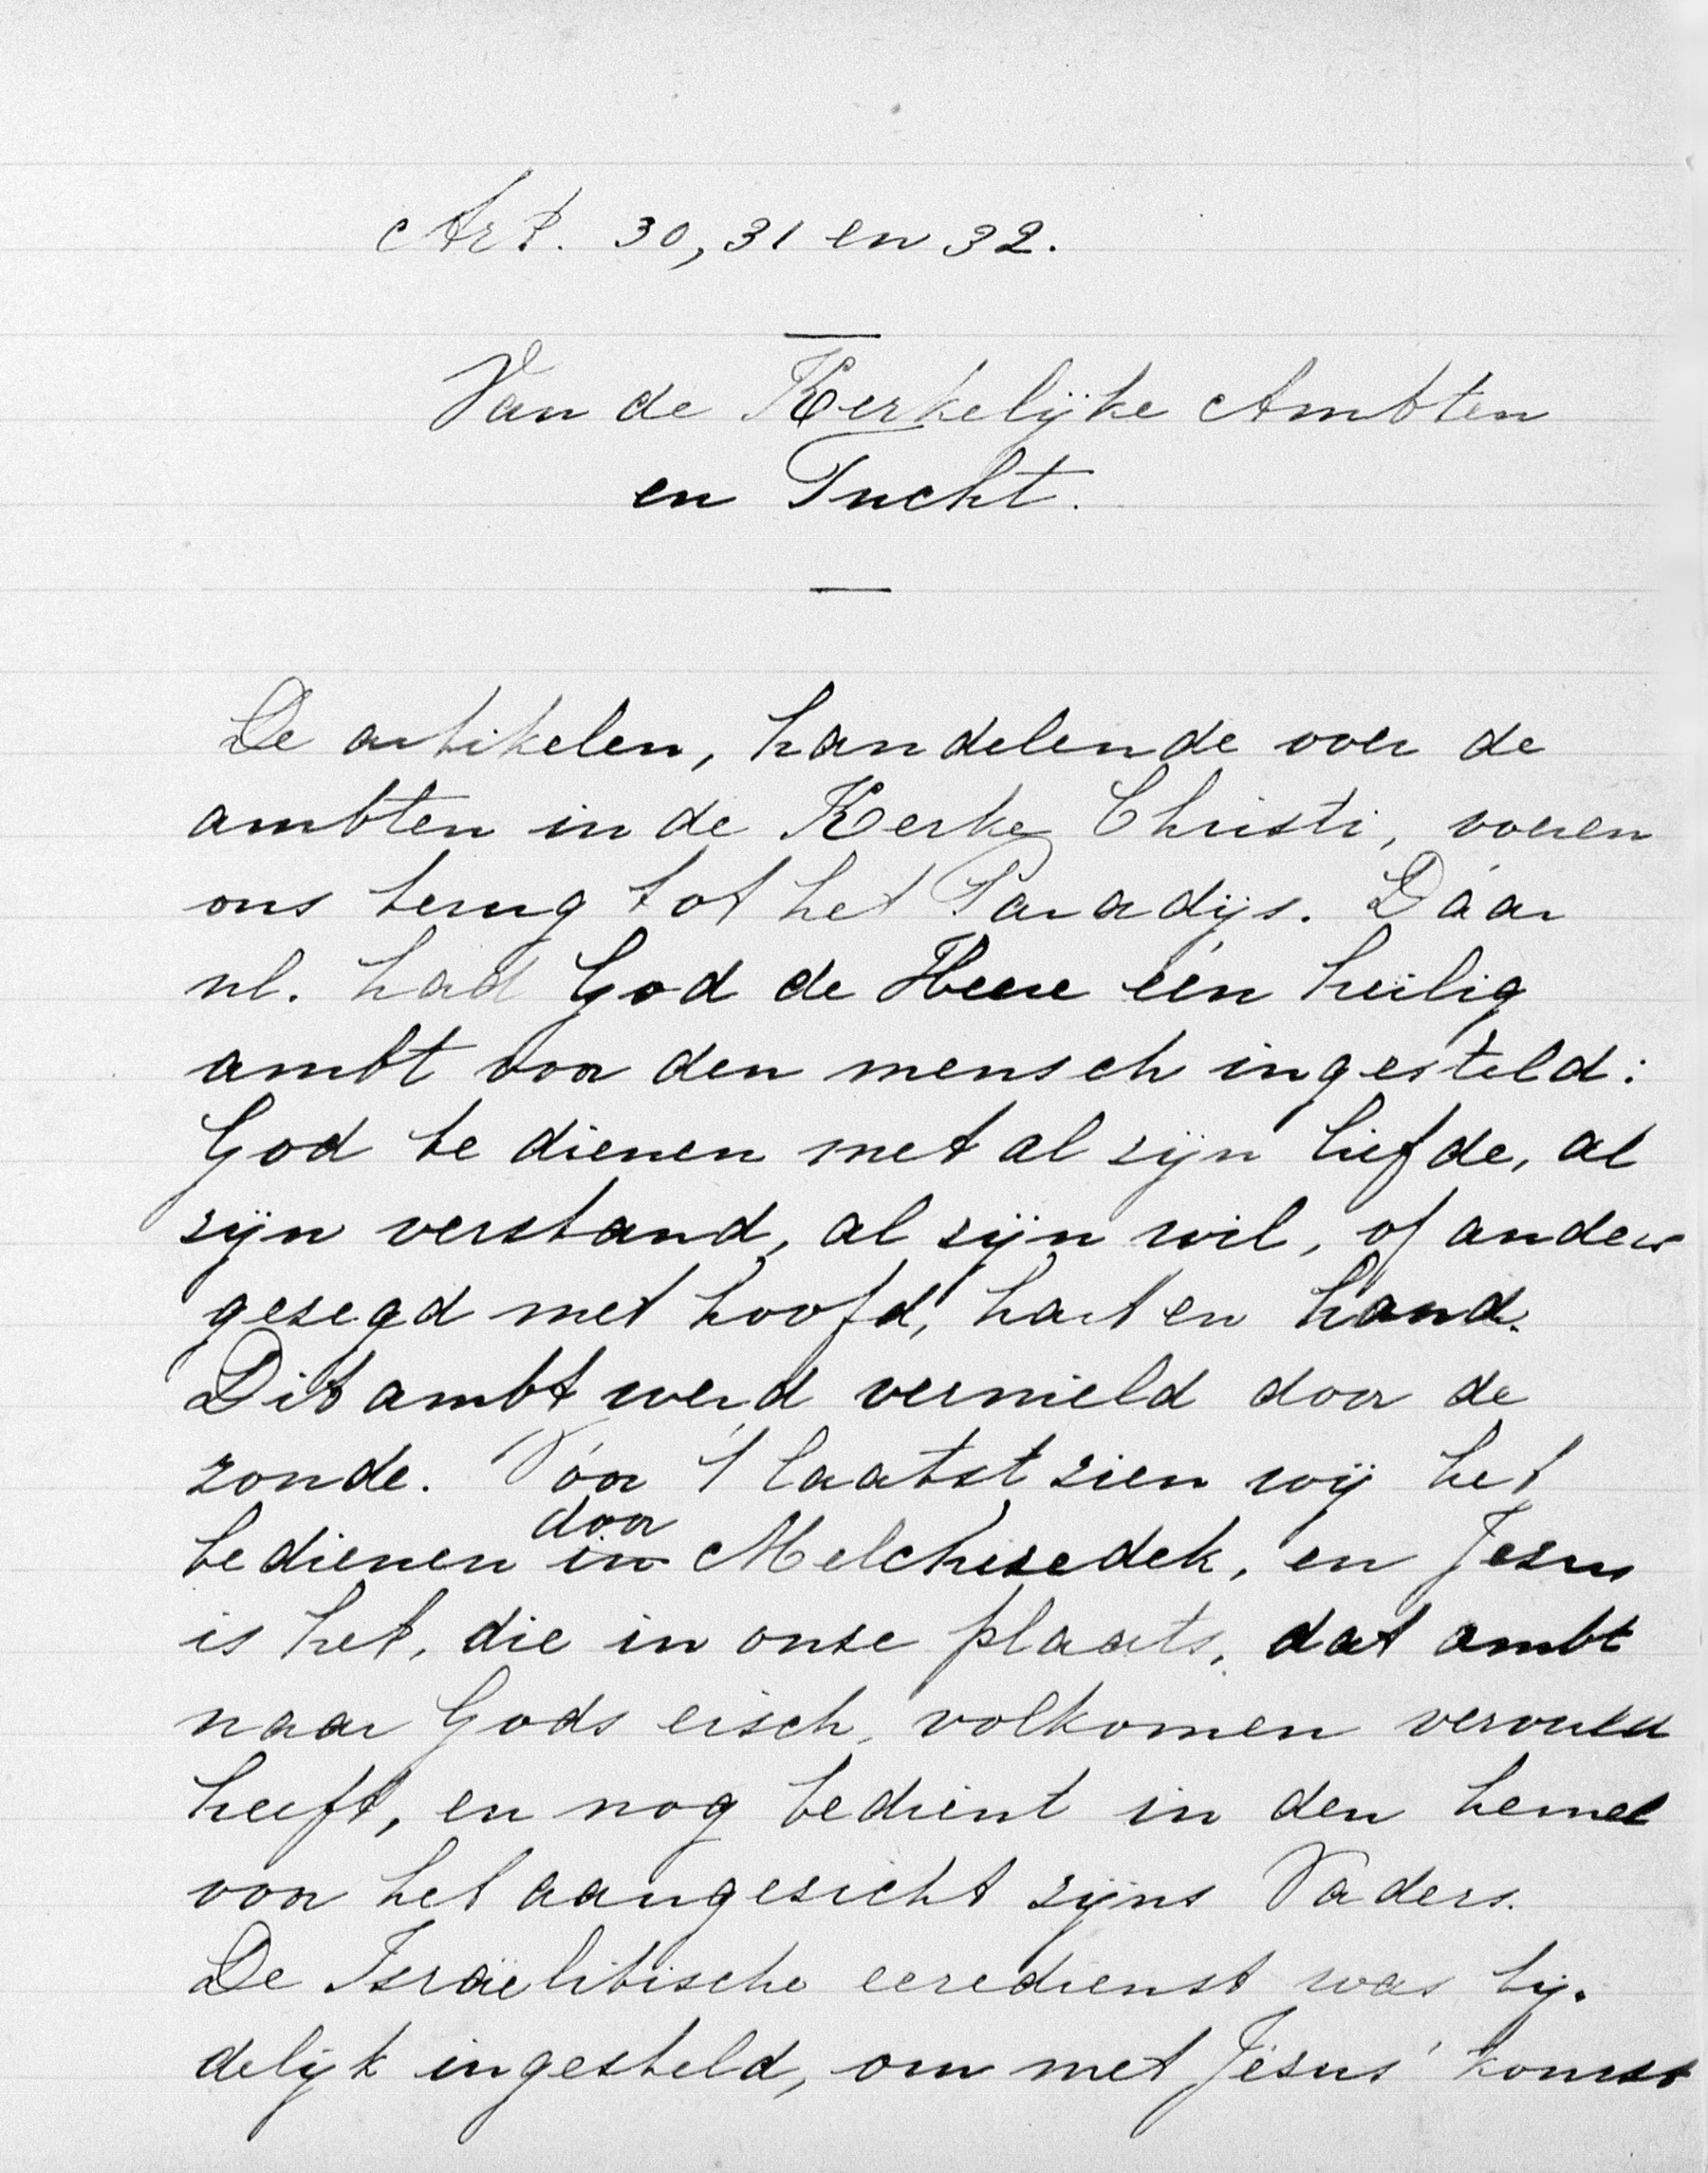 Art. 30, 31 en 32.
Van de Kerkelijke Ambten
en Tucht.
De artikelen, handelende over de
ambten in de Kerke Christi, voeren
ons terug tot het Paradijs. Dáár
nl. had God de Heere één heilig
ambt voor den mensch ingesteld:
God te dienen met al zijn liefde, al
zijn verstand, al zijn wil, of anders
gezegd met hoofd, hart en hand.
Dit ambt werd vernield door de
zonde. Vóór 't laatst zien wij het
bedienen in door Melchizedek, en Jezus
is het, die in onze plaats, dat ambt
naar Gods eisch, volkomen vervuld
heeft, en nog bedient in den hemel
voor het aangezicht zijns Vaders.
De Israëlitische eeredienst was tij-
delijk ingesteld, om met Jezus' komst